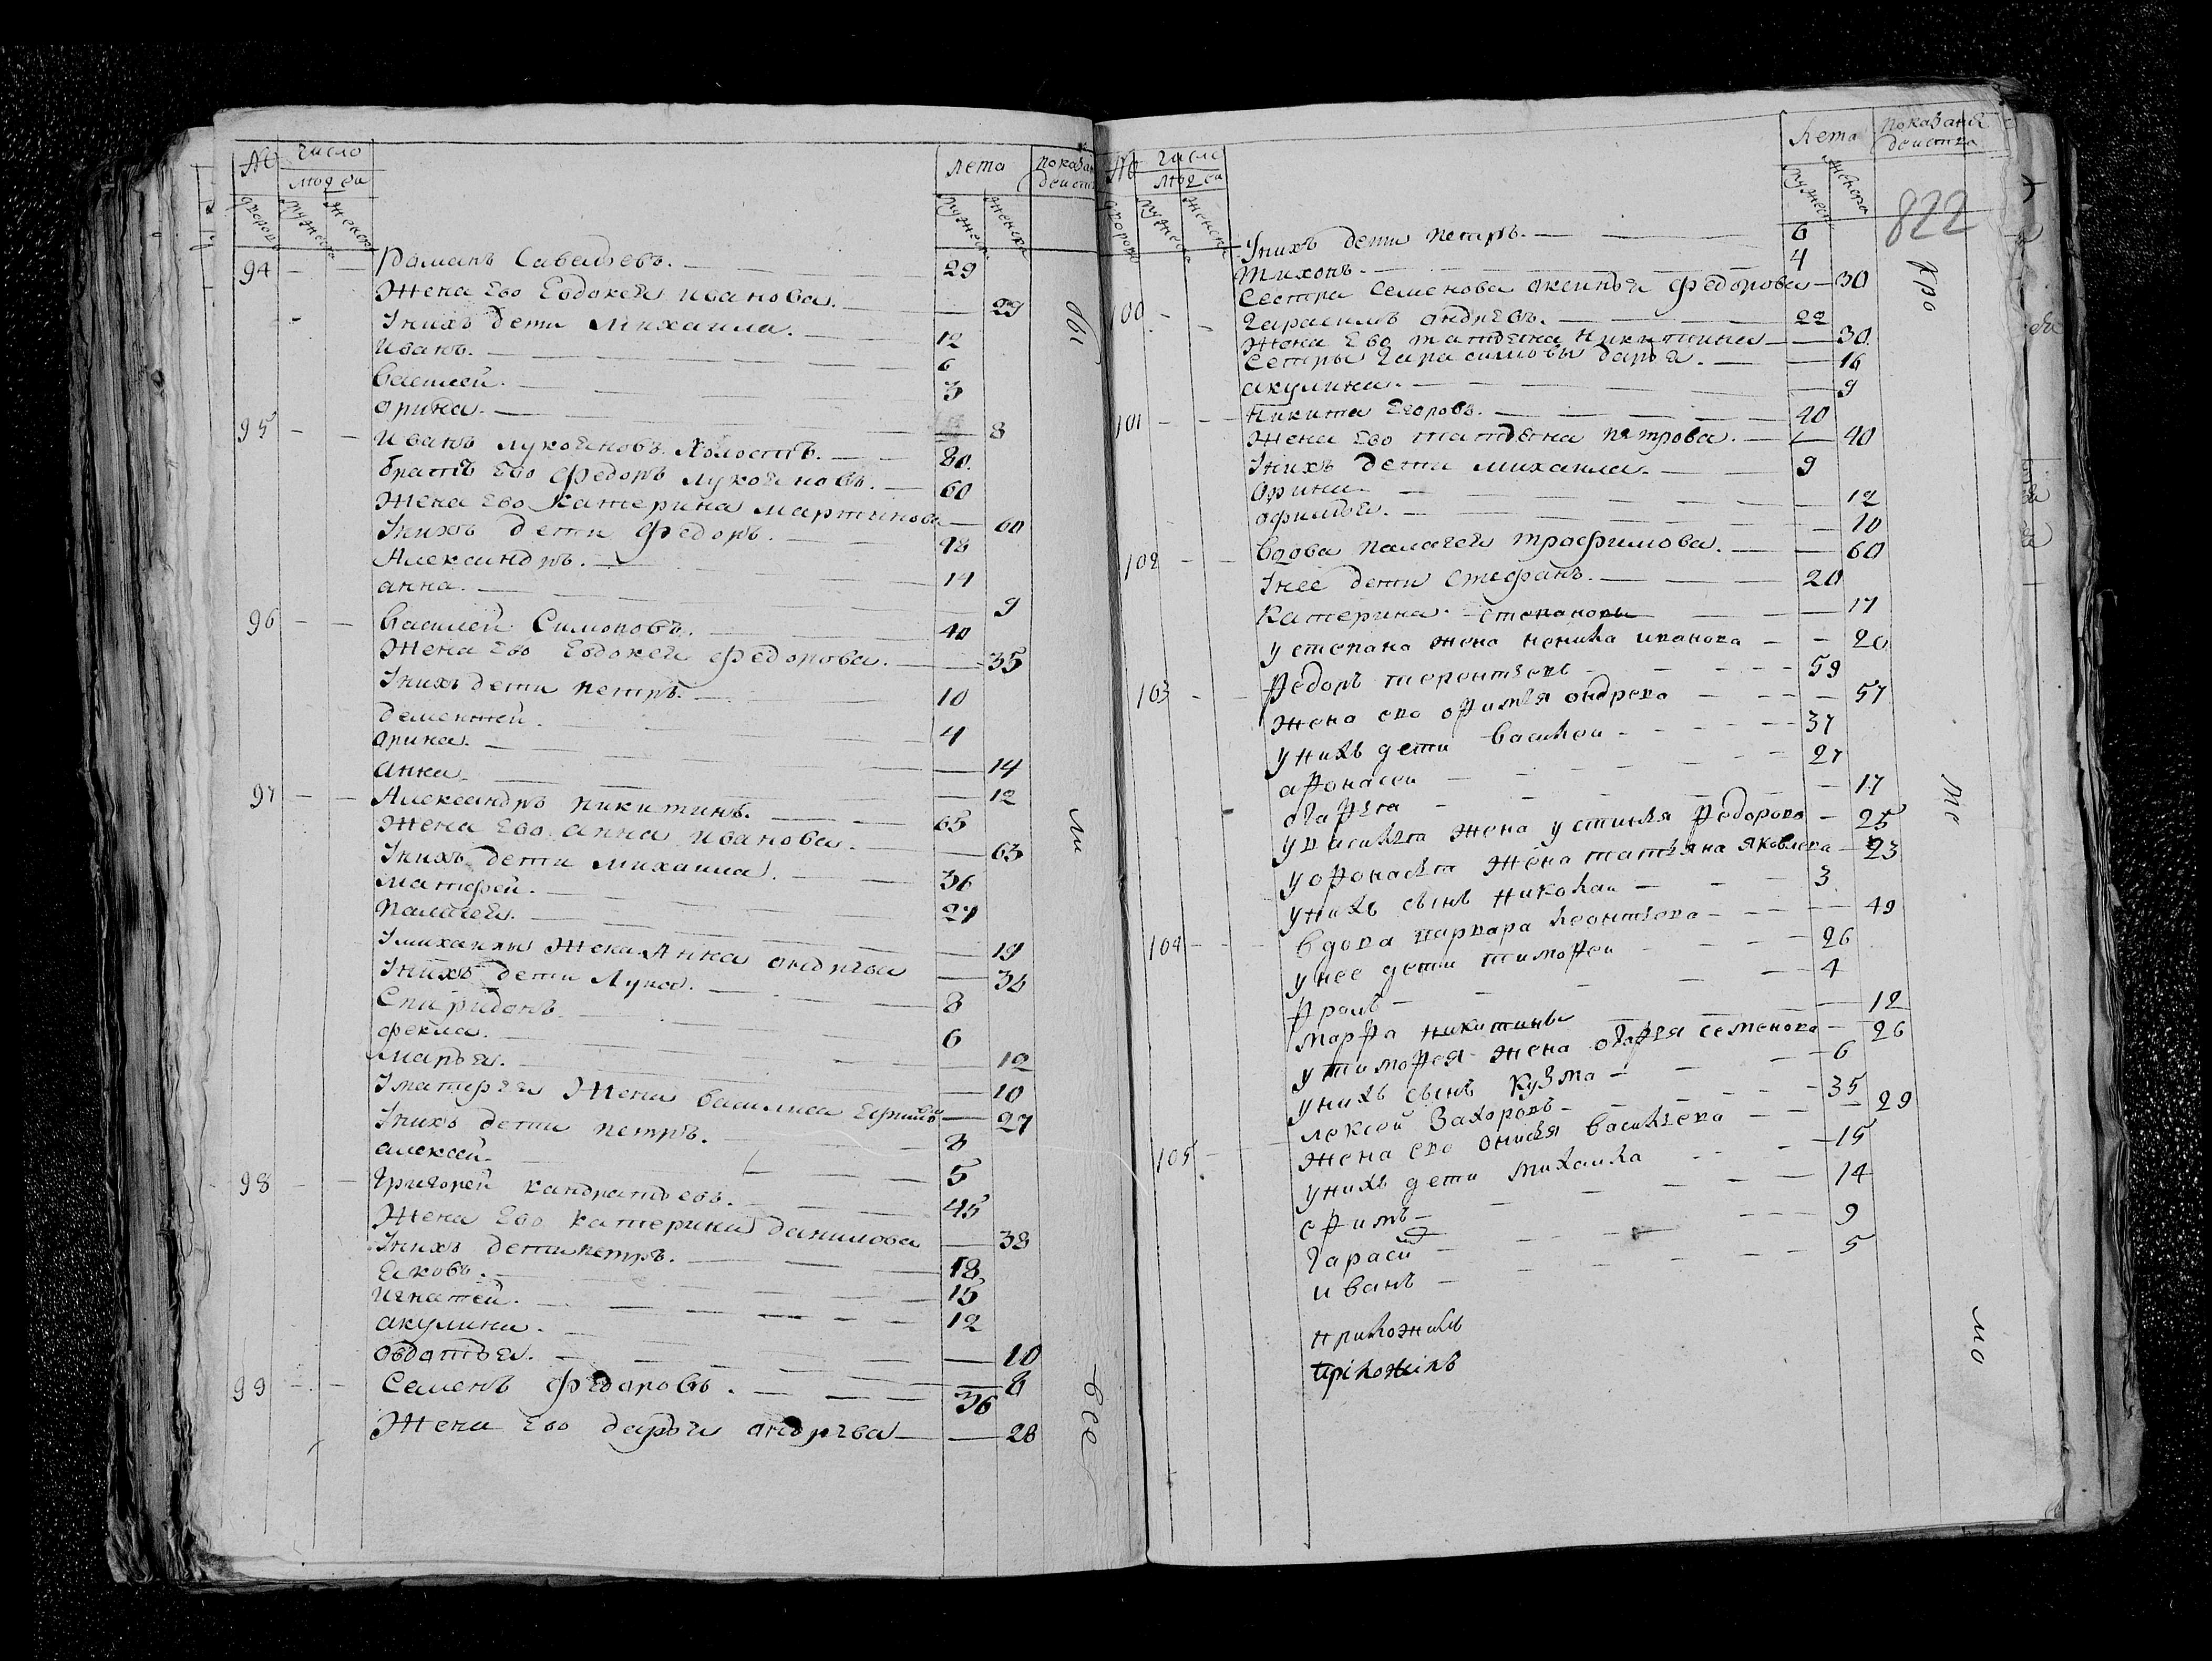 № число лета показан
людеи деист
дворов мужеск женск мужеск женск
94 Романъ Савельевъ. 29
Жена Ево Евдокея иванова. 29
Унихъ дети Михаила. 12
Иванъ. 6
василей. 3
орина. 8
95 Иванъ лукояновъ. Холостъ. 80
братъ Ево Федоръ лукояновъ. 60
Жена Ево Катерина мартинова 60
Унихъ дети Федоръ. 18
Александръ. 14
анна. 9
96 Василей Симоновъ. 40
Жена Ево Евдокея Федорова. 35
Унихъ дети петръ. 10
дементей. 4
орина. 14
анна 12
97 Александръ никитинъ. 65
Жена Ево анна иванова. 63
Унихъ дети михаила. 36
матфей. 27
палагея. 19
Умихаилы Жена Анна андрева 36
Унихъ дети Лука. 8
Спиридонъ 6
фекла. 12
марья. 10
Уматфея Жена василиса Ефимова 27
Унихъ дети петръ. 8
алексей. 5
98 Григорей кандратьевъ. 45
Жена Ево катерина данилова 38
Унихъ дети петръ. 18
Яковъ. 15
игнатей. 12
акулина. 10
овдотья. 8
99 Семенъ федоровъ. 36
Жена Ево дарья андрева 28
бы
ли
все
№ число Лета показания
людеи деиства
дворов мужеск женск мужеск женска
822
Унихъ дети петръ. 6
тихонъ. 4
Сестра семенова аксинья федорова 30
100 Гарасимъ андревъ. 22
Жена Ево татьяна Никитина 30
Сетры Гарасимовы дарья. 16
акулина. 9
101 Никита Егоровъ. 40
Жена Ево татьяна петрова. 40
Унихъ дети михаила. 9
орина 12
афимья. 10
102 Вдова палагея трофимова. 60
Унее дети Стефанъ. 20
Катерина. степановы 17
у степана жена ненила иванова 20
103 Федоръ терентьевъ 59
жена ево офимья андрева 57
унихъ дети василеи 37
афонасеи 27
агафья 17
у василья жена устинья федорова 25
у офонасья жена татьяна яковлева 23
унихъ сынъ николаи 3
104 вдова варвара леонтьева 49
у нее дети тимофеи 26
фролъ 4
марфа никитины 12
у тимофея жена агафья семенова 26
унихъ сынъ кузма 6
105 лексеи Захоровъ 35
жена ево онисья васильева 29
унихъ дети михаила 15
ефимъ 14
гарасим 9
иванъ 5
приложилъ
приложилъ
кро
ме
мо